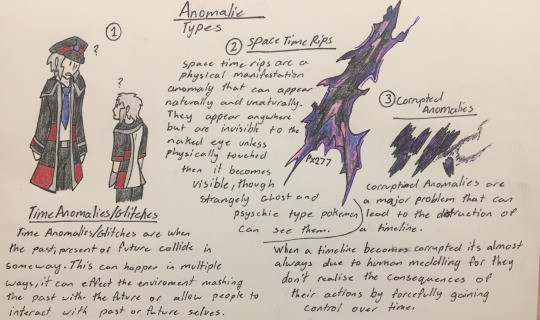 Anomalie
Types
①
?
?
② Space Time Rips
Space time rips are a
physical manifestation
anomaly that can appear
naturally and unaturally.
They appear anywhere
but are invisible to the
naked eye unless
physically touched
then it becomes
visible, though
strangely Ghost and
psyschic type pokemon
can see them.
Px277
③ Corrupted
Anomalies
Corruptind Anomalies are
a major problem that can
lead to the dstruction of
a timeline.
Time Anomalies/Glitches
Time Anomalies/Glitches are when
the past, present or future collide in
someway. This can happen in multiple
ways, it can effect the enviroment mashing
the past with the future or allow people to
interact with past or future selves.
When a timeline becomes corrupted its almost
always due to human meddling for they
don't realise the consequences of
their actions by forcefully gaining
control over time.